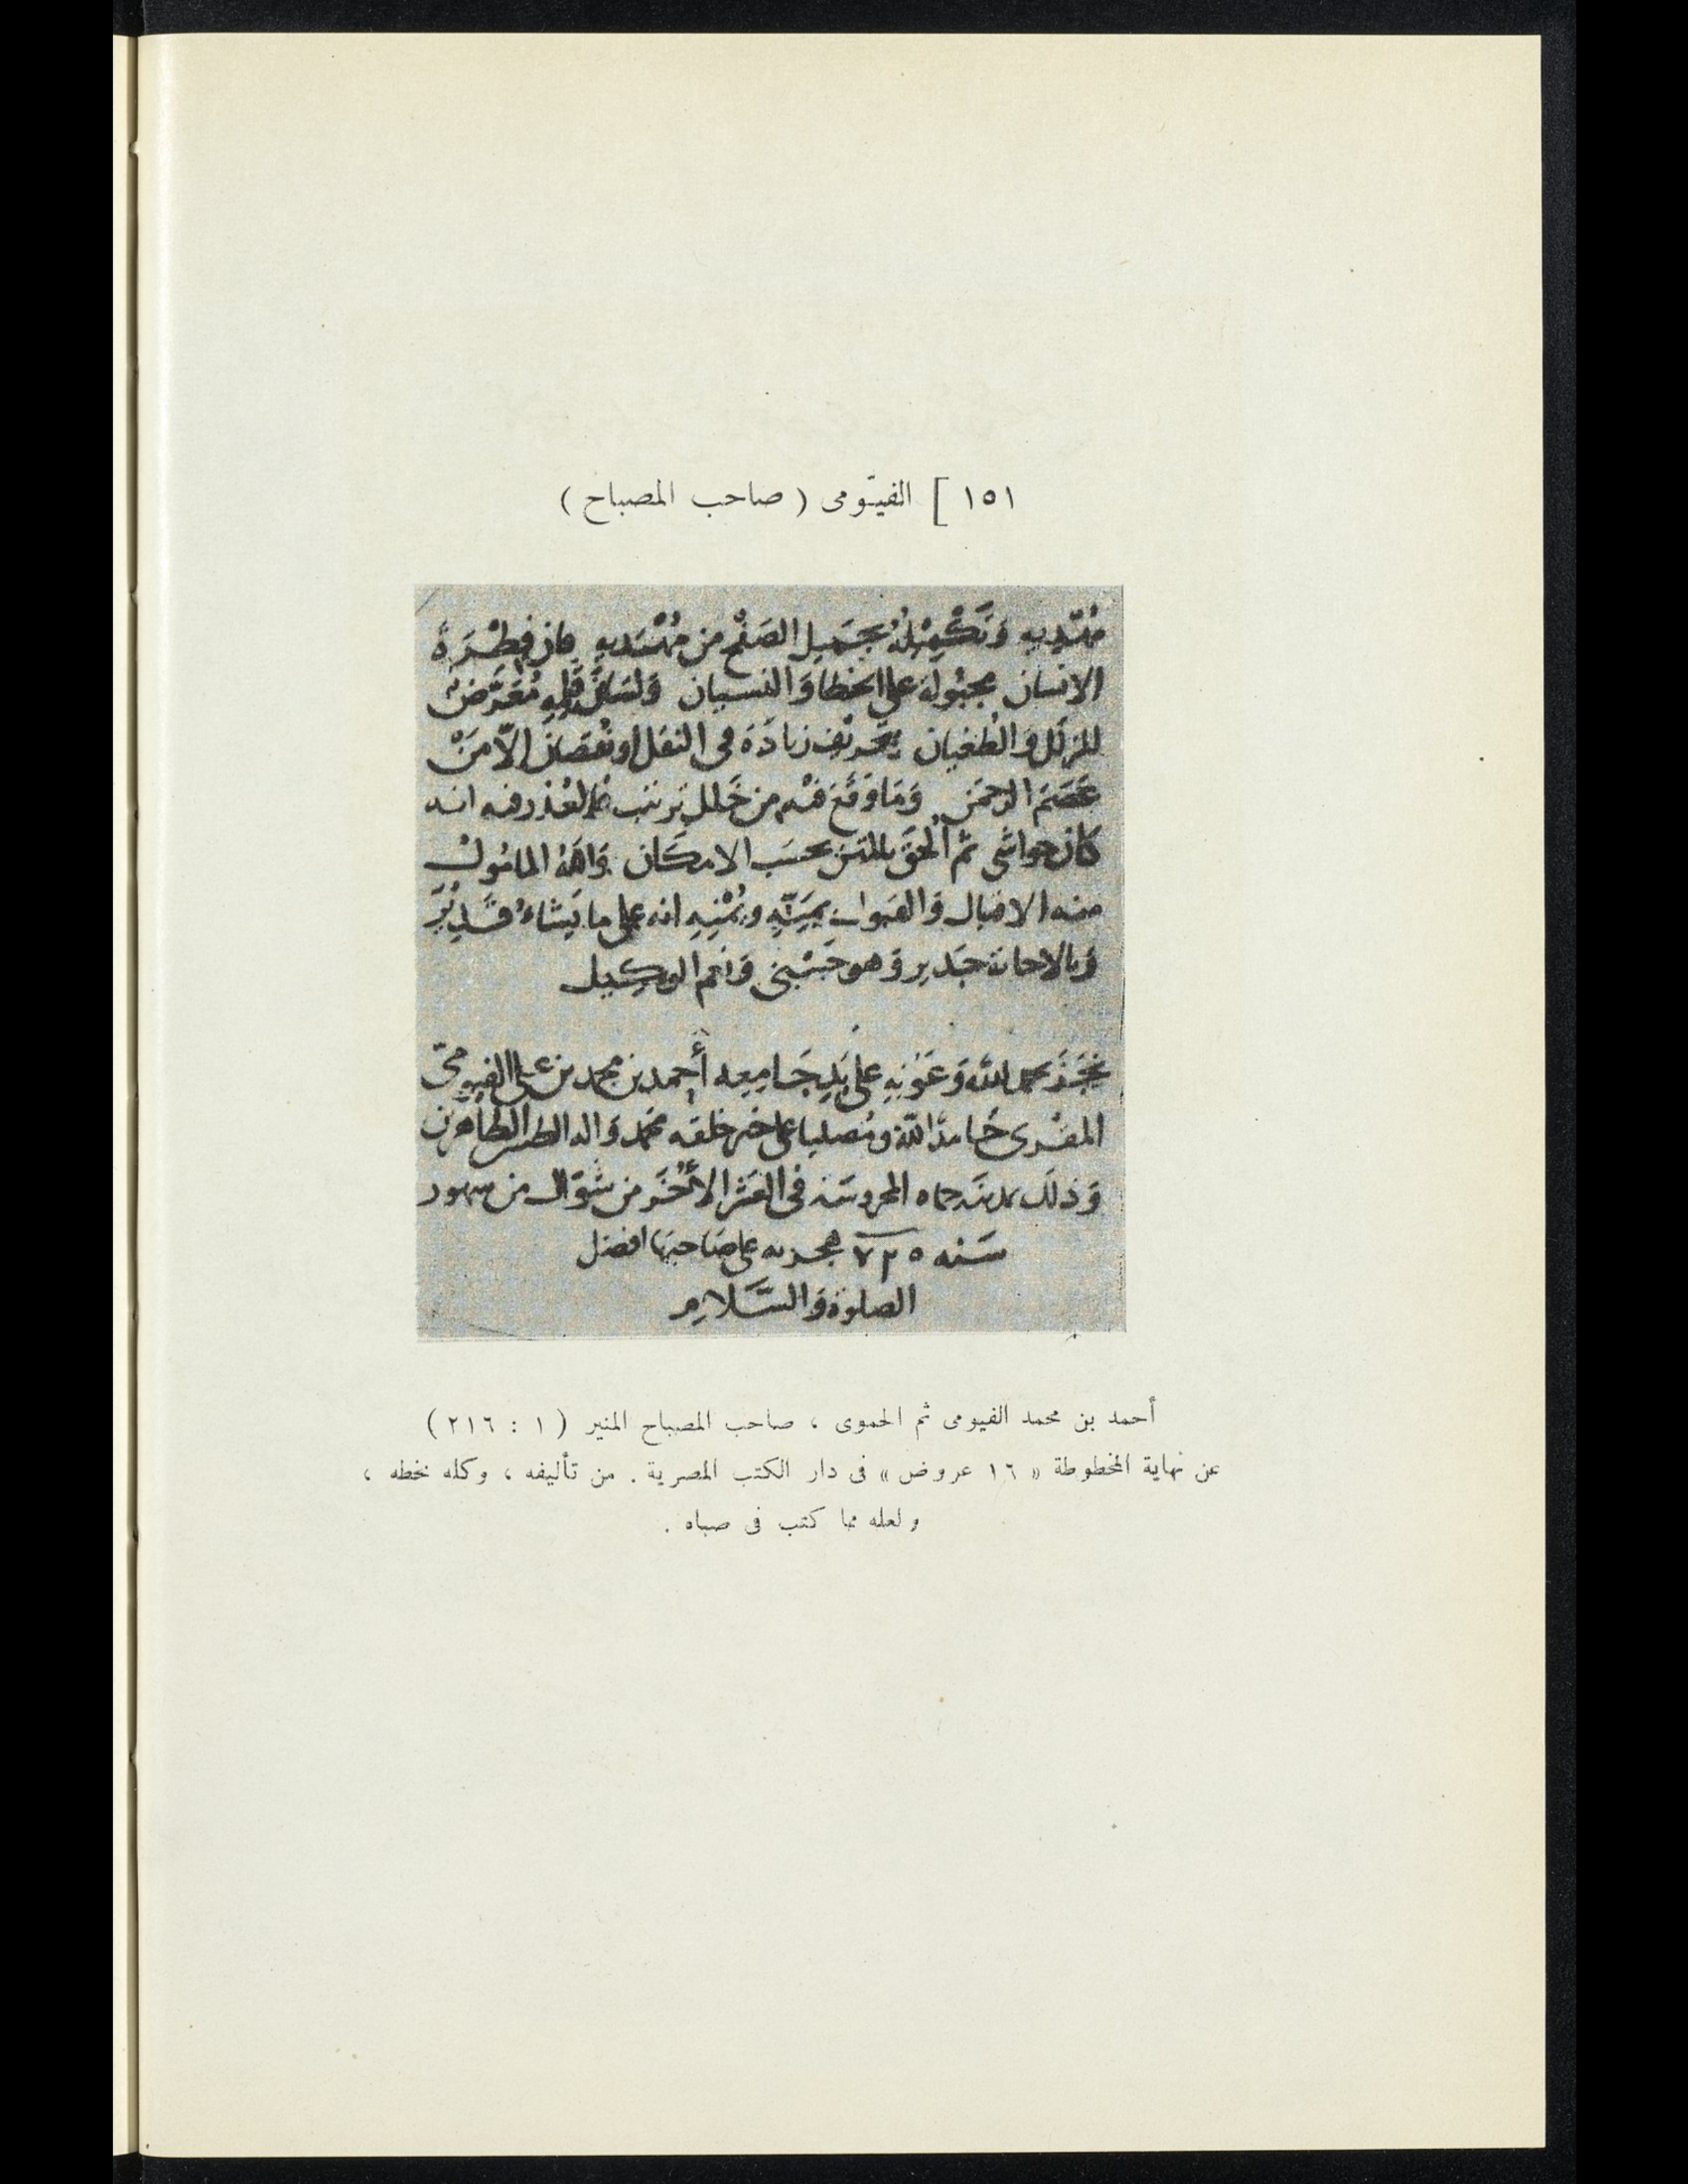 ١٥١ ] الفيّومى ( صاحب المصباح )
وَتَكْمِيْلُهُ بجَميل الصَفْح من مُهْتَدِيهِ فان فِطْرَةَ
الانسان مجبُولة على الخطا وَالنسيان وَلسَانُ قَلمِهِ مُعَرَّضٌ
للزلَل وَالطُغيان بتحريف زيادَة فى النقل او نُقصَان الاَّ مَنْ
عَصَمَ الرحمَن وَمَا وَقَعَ فيْه من خَلل ترتيب فالعُذر فيه انه
كان حواشى ثم أُلحقَ بالمتن بحسَب الامكَان وَاللهُ المامُول
منه الاقبال وَالقبول بمَنِّهِ ويُمْنِهِ انه على ما يَشَاءُ قَدِيْرٌ
وَبالاجابة جَدير وَهو حَسْبِى وَنعم الوكِيل
نَجَزَ بحمد الله وَعَوْنِهِ على يَدِ جَامِعِه أَحمد بن محمد بن على الفيومىّ
المقْرى حَامدًا لله ومُصليا على خير خلقه محمد وَاله الطيبين الطاهرين
وَذلَك بمدينَة حماه المحروسَة فى العَشْر الأُخَر من شَوَّال من شهور
سَنه ٧٢٥ هجريه على صَاحبها افضل
الصلوة وَالسَّلامِ
أحمد بن محمد الفيومى ثم الحموى ، صاحب المصباح المنير ( ١ : ٢١٦ )
عن نهاية المخطوطة « ١٦ عروض » فى دار الكتب المصرية . من تأليفه ، وكله بخطه ،
ولعله مما كتب فى صباه .